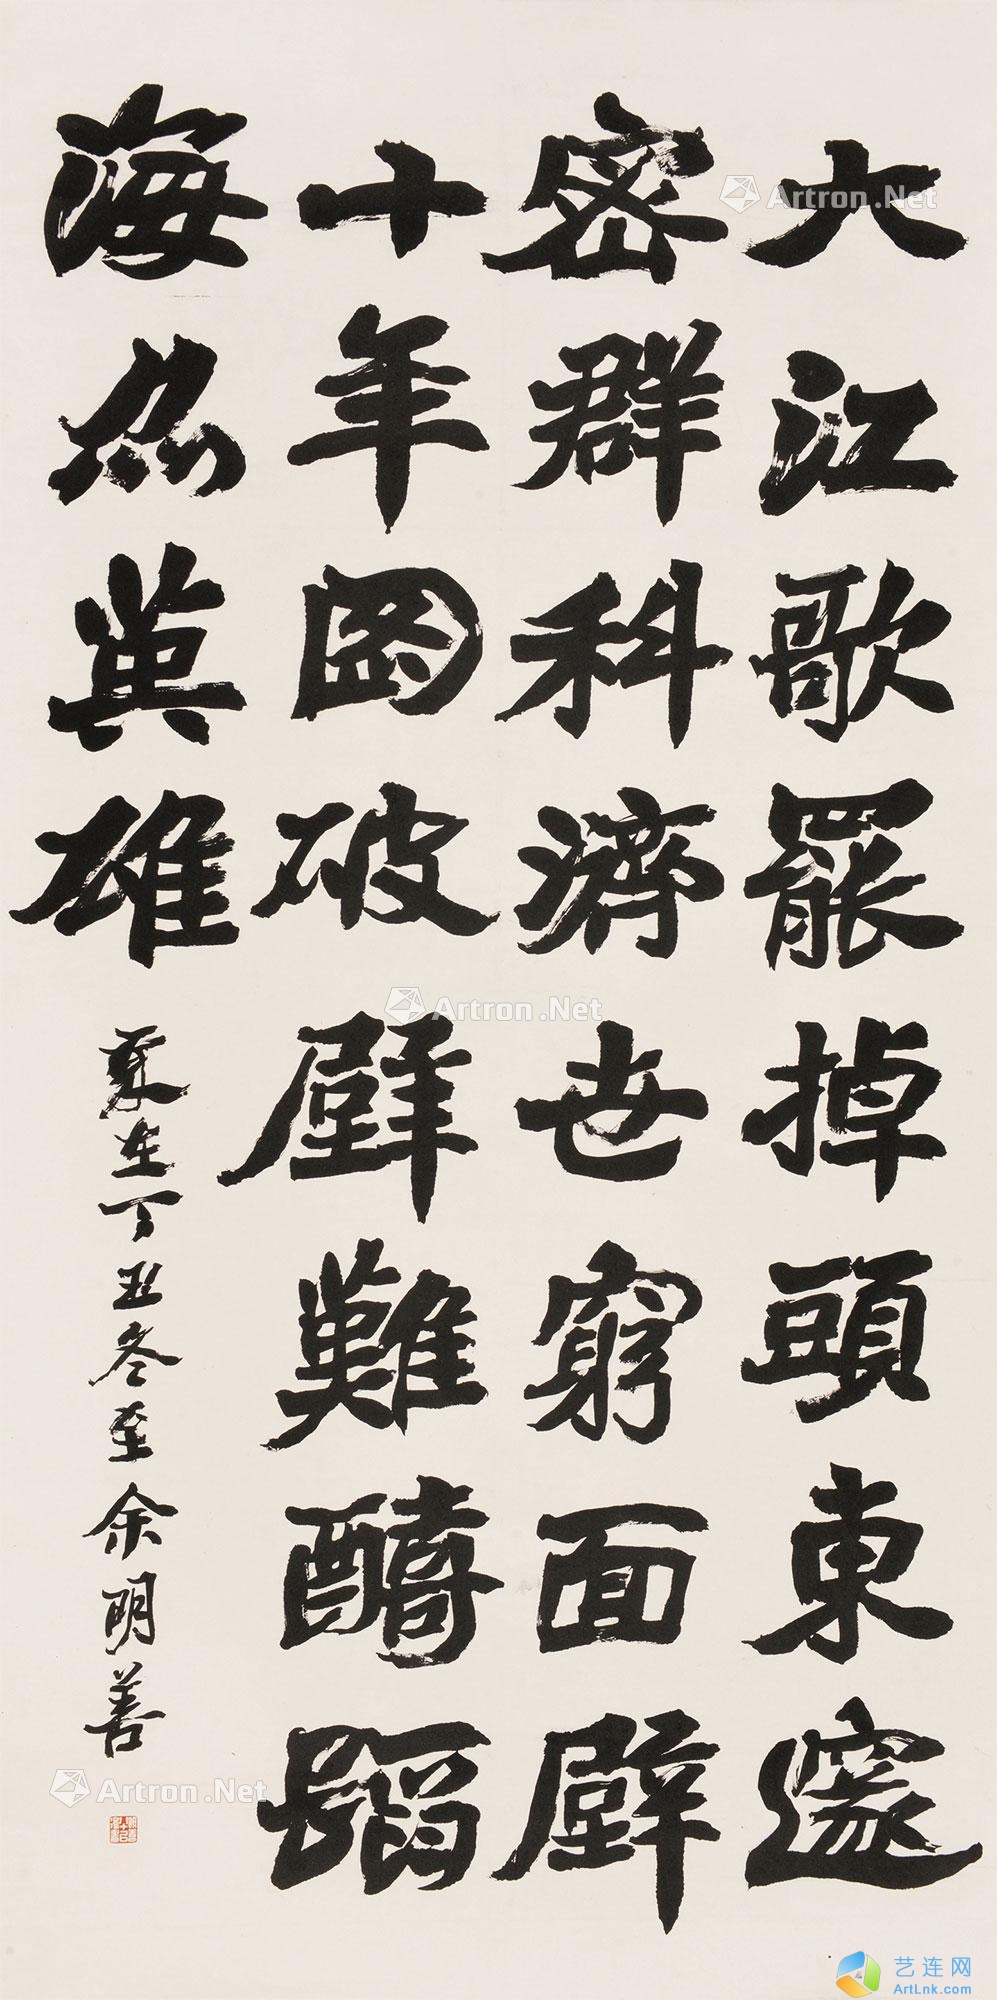 大江歌罷掉頭東邃
密群科濟世窮面壁
十年圖破壁難醻蹈
海亦英雄
歲在丁丑冬至余明善
Artron.Net
Artron.Net
Artron.Net
Artron.Net
艺连网
ArtLnk.com